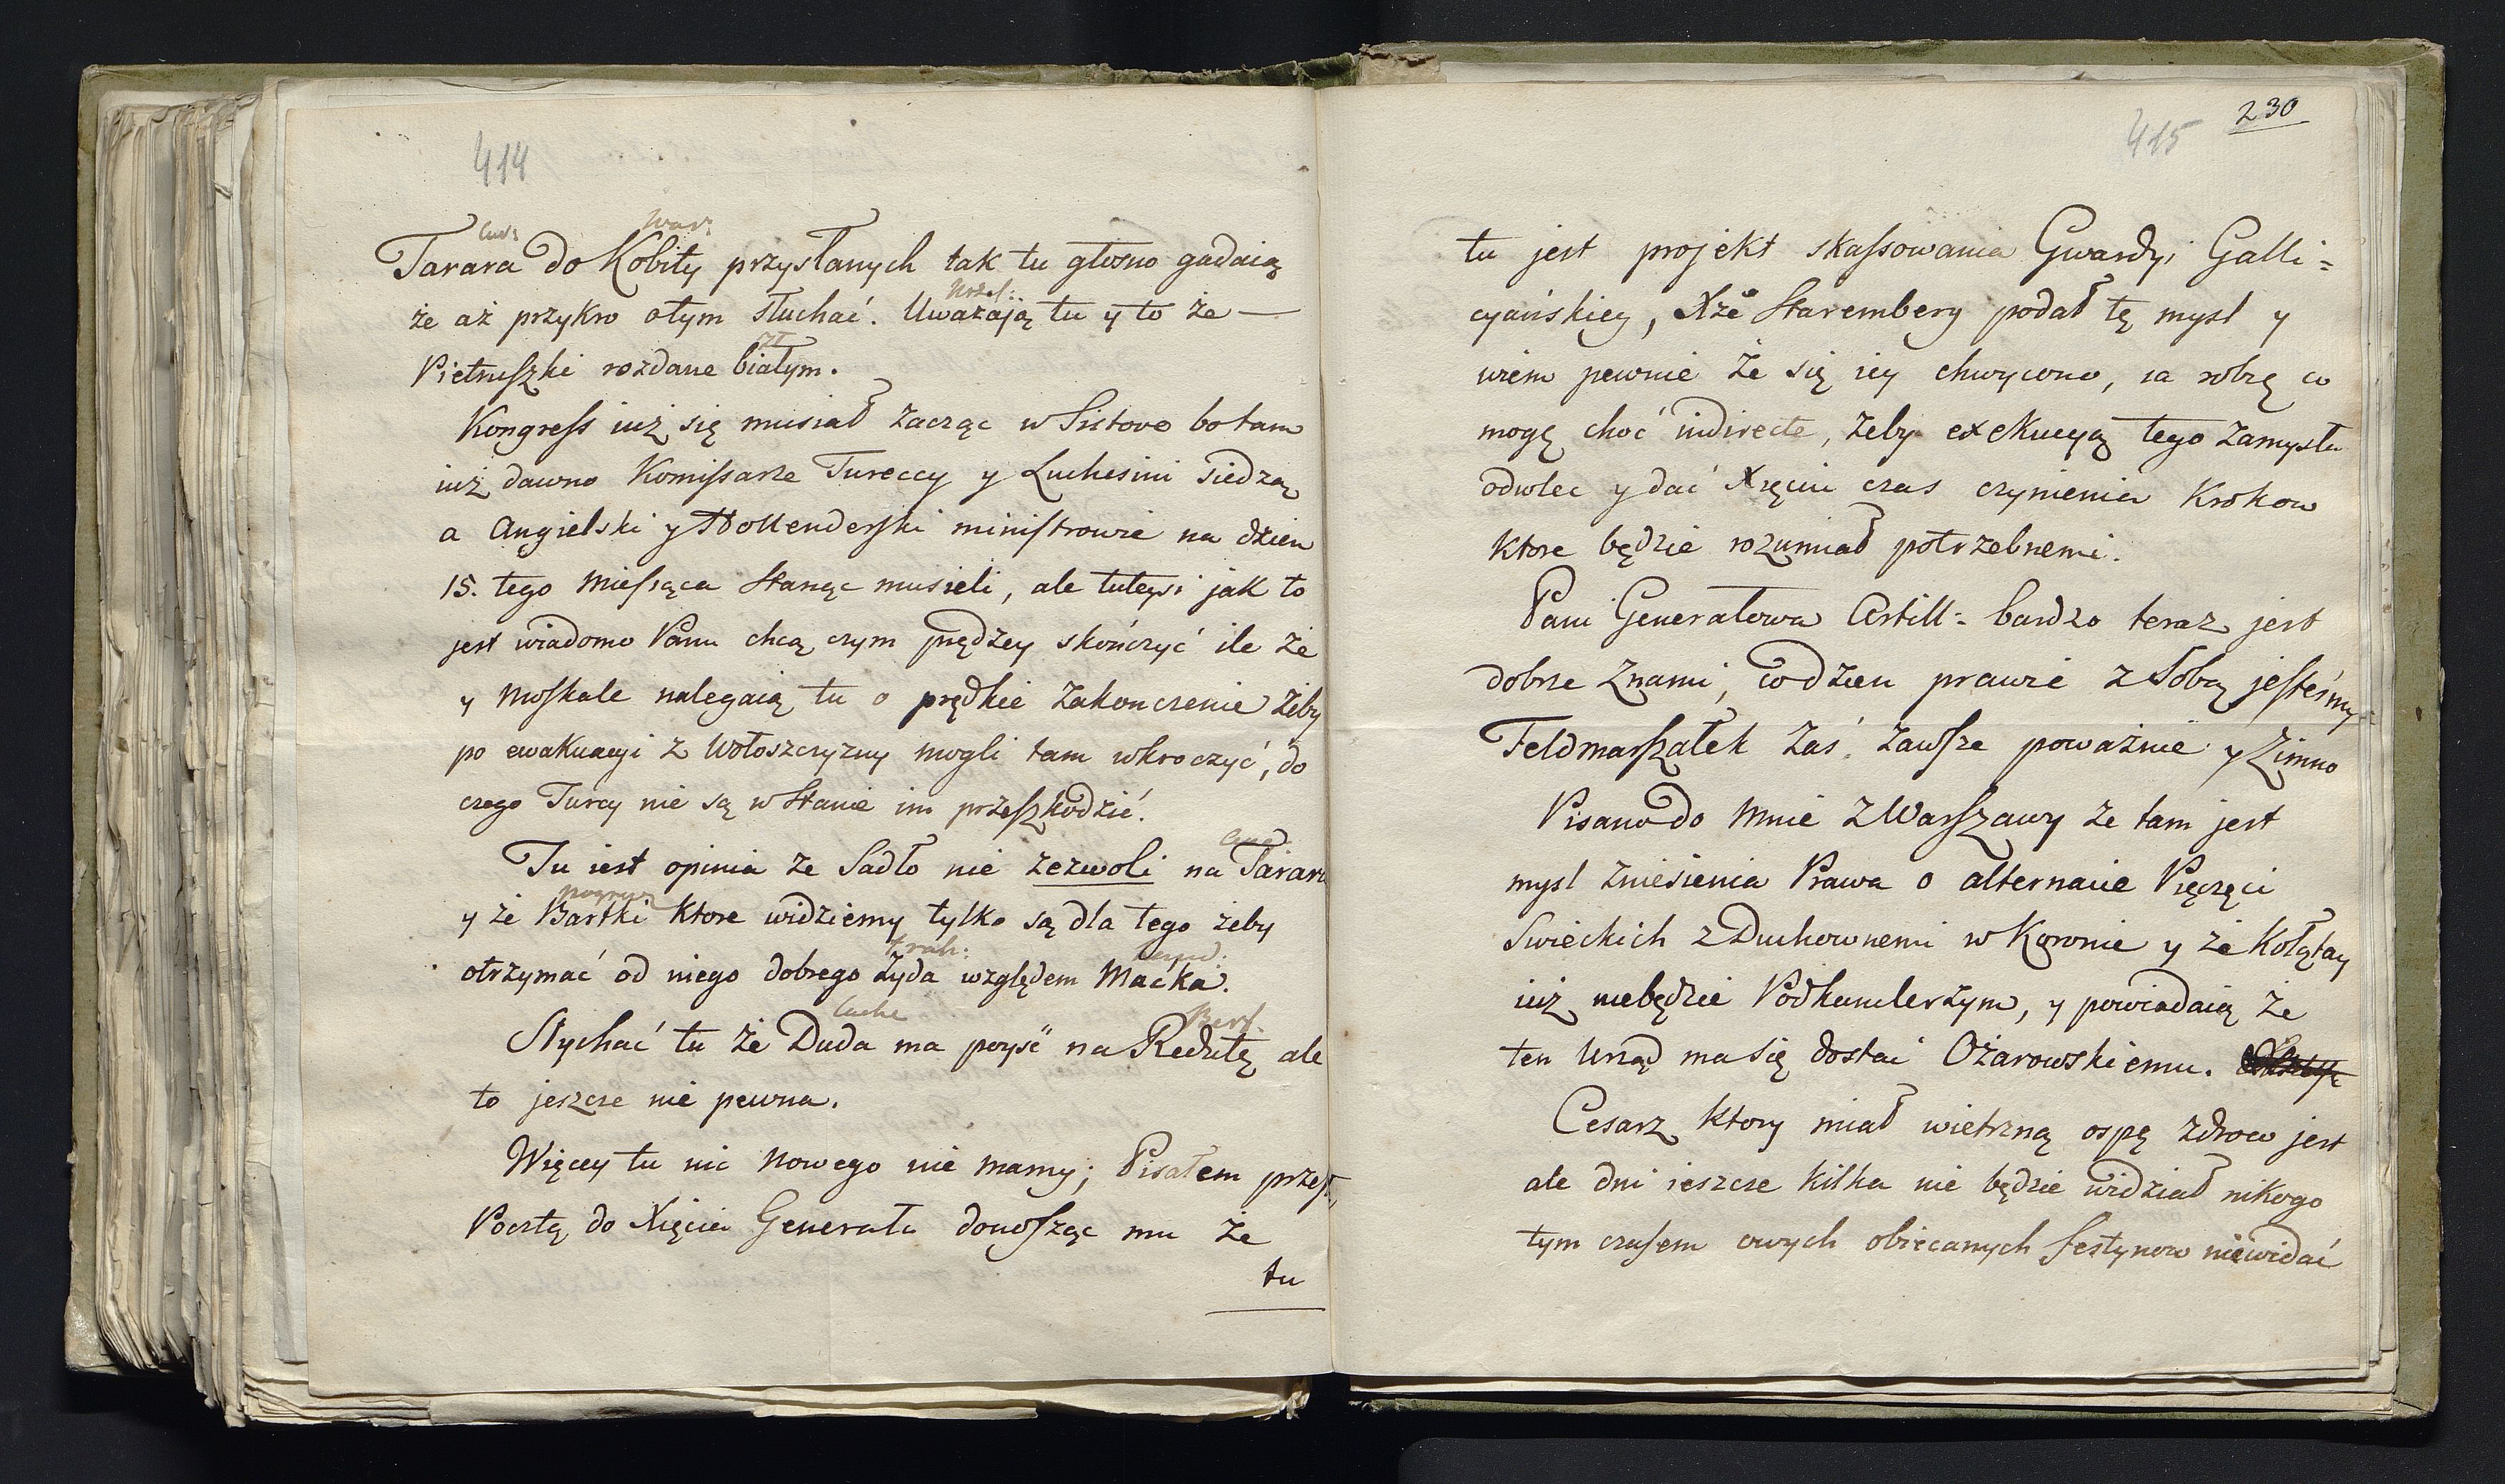 414
Tarara do Kobity przysłanych tak tu głosno gadaią
że aż przykro otym słuchać. Uważają tu y to że —
Pietruszki rozdane białym.
Kongress iuż się musiał zacząc w Sistove bo tam
iuż dawno Komissarze Tureccy y Luchesini siedzą
a Angielski y Hollenderski ministrowie na dzien
15. tego Miesiąca stanąc musieli, ale tuteysi jak to
jest wiadomo Panu chcą czym prędzey skończyć ile że
y Moskale nalegaią tu o prędkie zakonczenie żeby
po ewakuacyi z Wołoszczyzny mogli tam wkroczyć, do
czego Turcy nie są w stanie im przeszkodzić.
Tu iest opinia że Sadło nie zezwoli na Tarara
y że Bartki ktore widziemy tylko są dla tego żeby
otrzymać od niego dobrego Żyda względem Maćka.
Słychać tu że Duda ma poyść na Redutę ale
to jeszcze nie pewna.
Więcey tu nic Nowego nie mamy; Pisałem przesz.
Pocztę do Xięcia Generała donosząc mu że
tu
230
415
tu jest projekt skassowania Gwardyi Galli=
cyańskiey, Xże Staremberg podał tę mysl y
wiem pewnie że się iey chwycono, ia robię co
mogę choć indirecte, żeby exekucyą tego zamysłu
odwlec y dać Xięciu czas czynienia krokow
ktore będzie rozumiał potrzebnemi.
Pani Generałowa Artill: bardzo teraz jest
dobrze znami, codzien prawie z sobą jesteśmy
Feldmarszałek zaś zawsze poważnie y zimno
Pisano do Mnie z Warszawy że tam jest
mysl zniesienia Prawa o alternacie Pięczęci
Swieckich z Duchownemi w Koronie y że Kołątay
iuż niebędzie Podkanclerzym, y powiadaią że
ten Urząd ma się dostać Ożarowskiemu.
Cesarz ktory miał wietrzną ospę zdrow jest
ale dni ieszcze kilka nie będzie widział nikogo
tym czasem owych obiecanych festynow niewidać